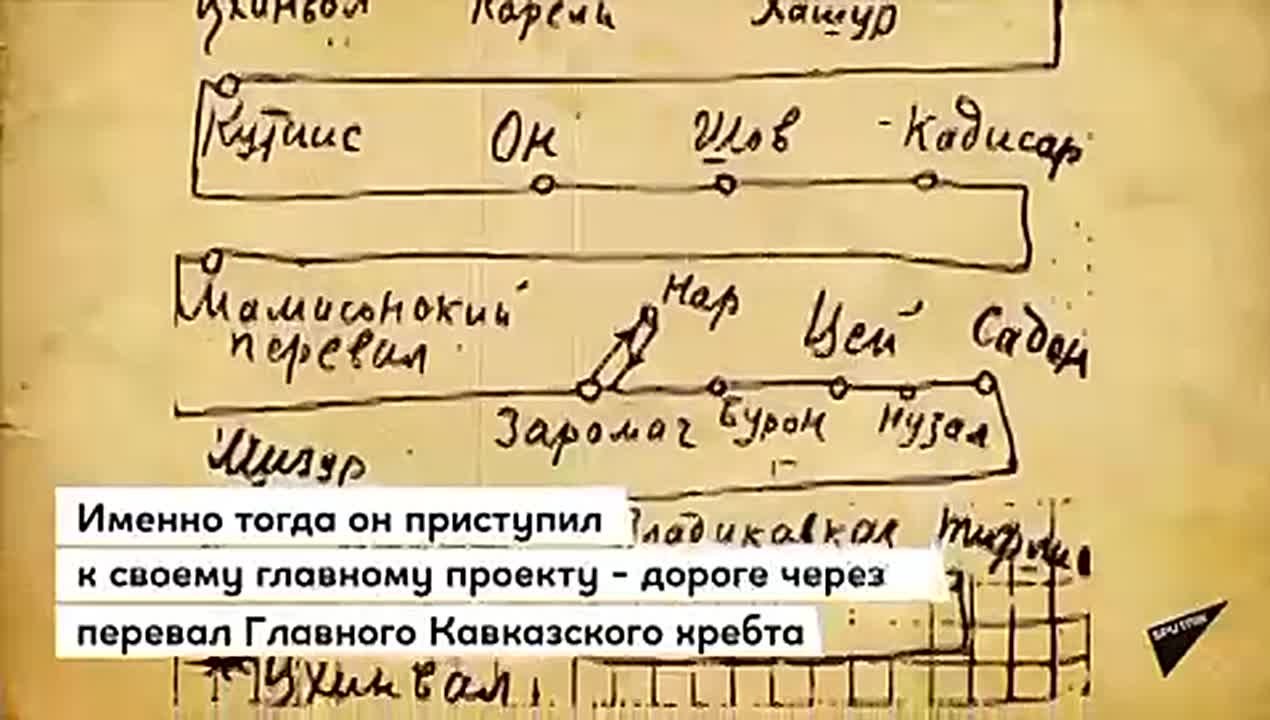 Цхинвал Карели Хашур
Кутаис Он Шов - Кадисар
Мамисонский
перевал
Нар
Цей Садон
Заромаг Бурон Нузал
Мизур
Владикавказ
Именно тогда он приступил
к своему главному проекту – дороге через
перевал Главного Кавказского хребта
Цхинвал
SPUTNIK